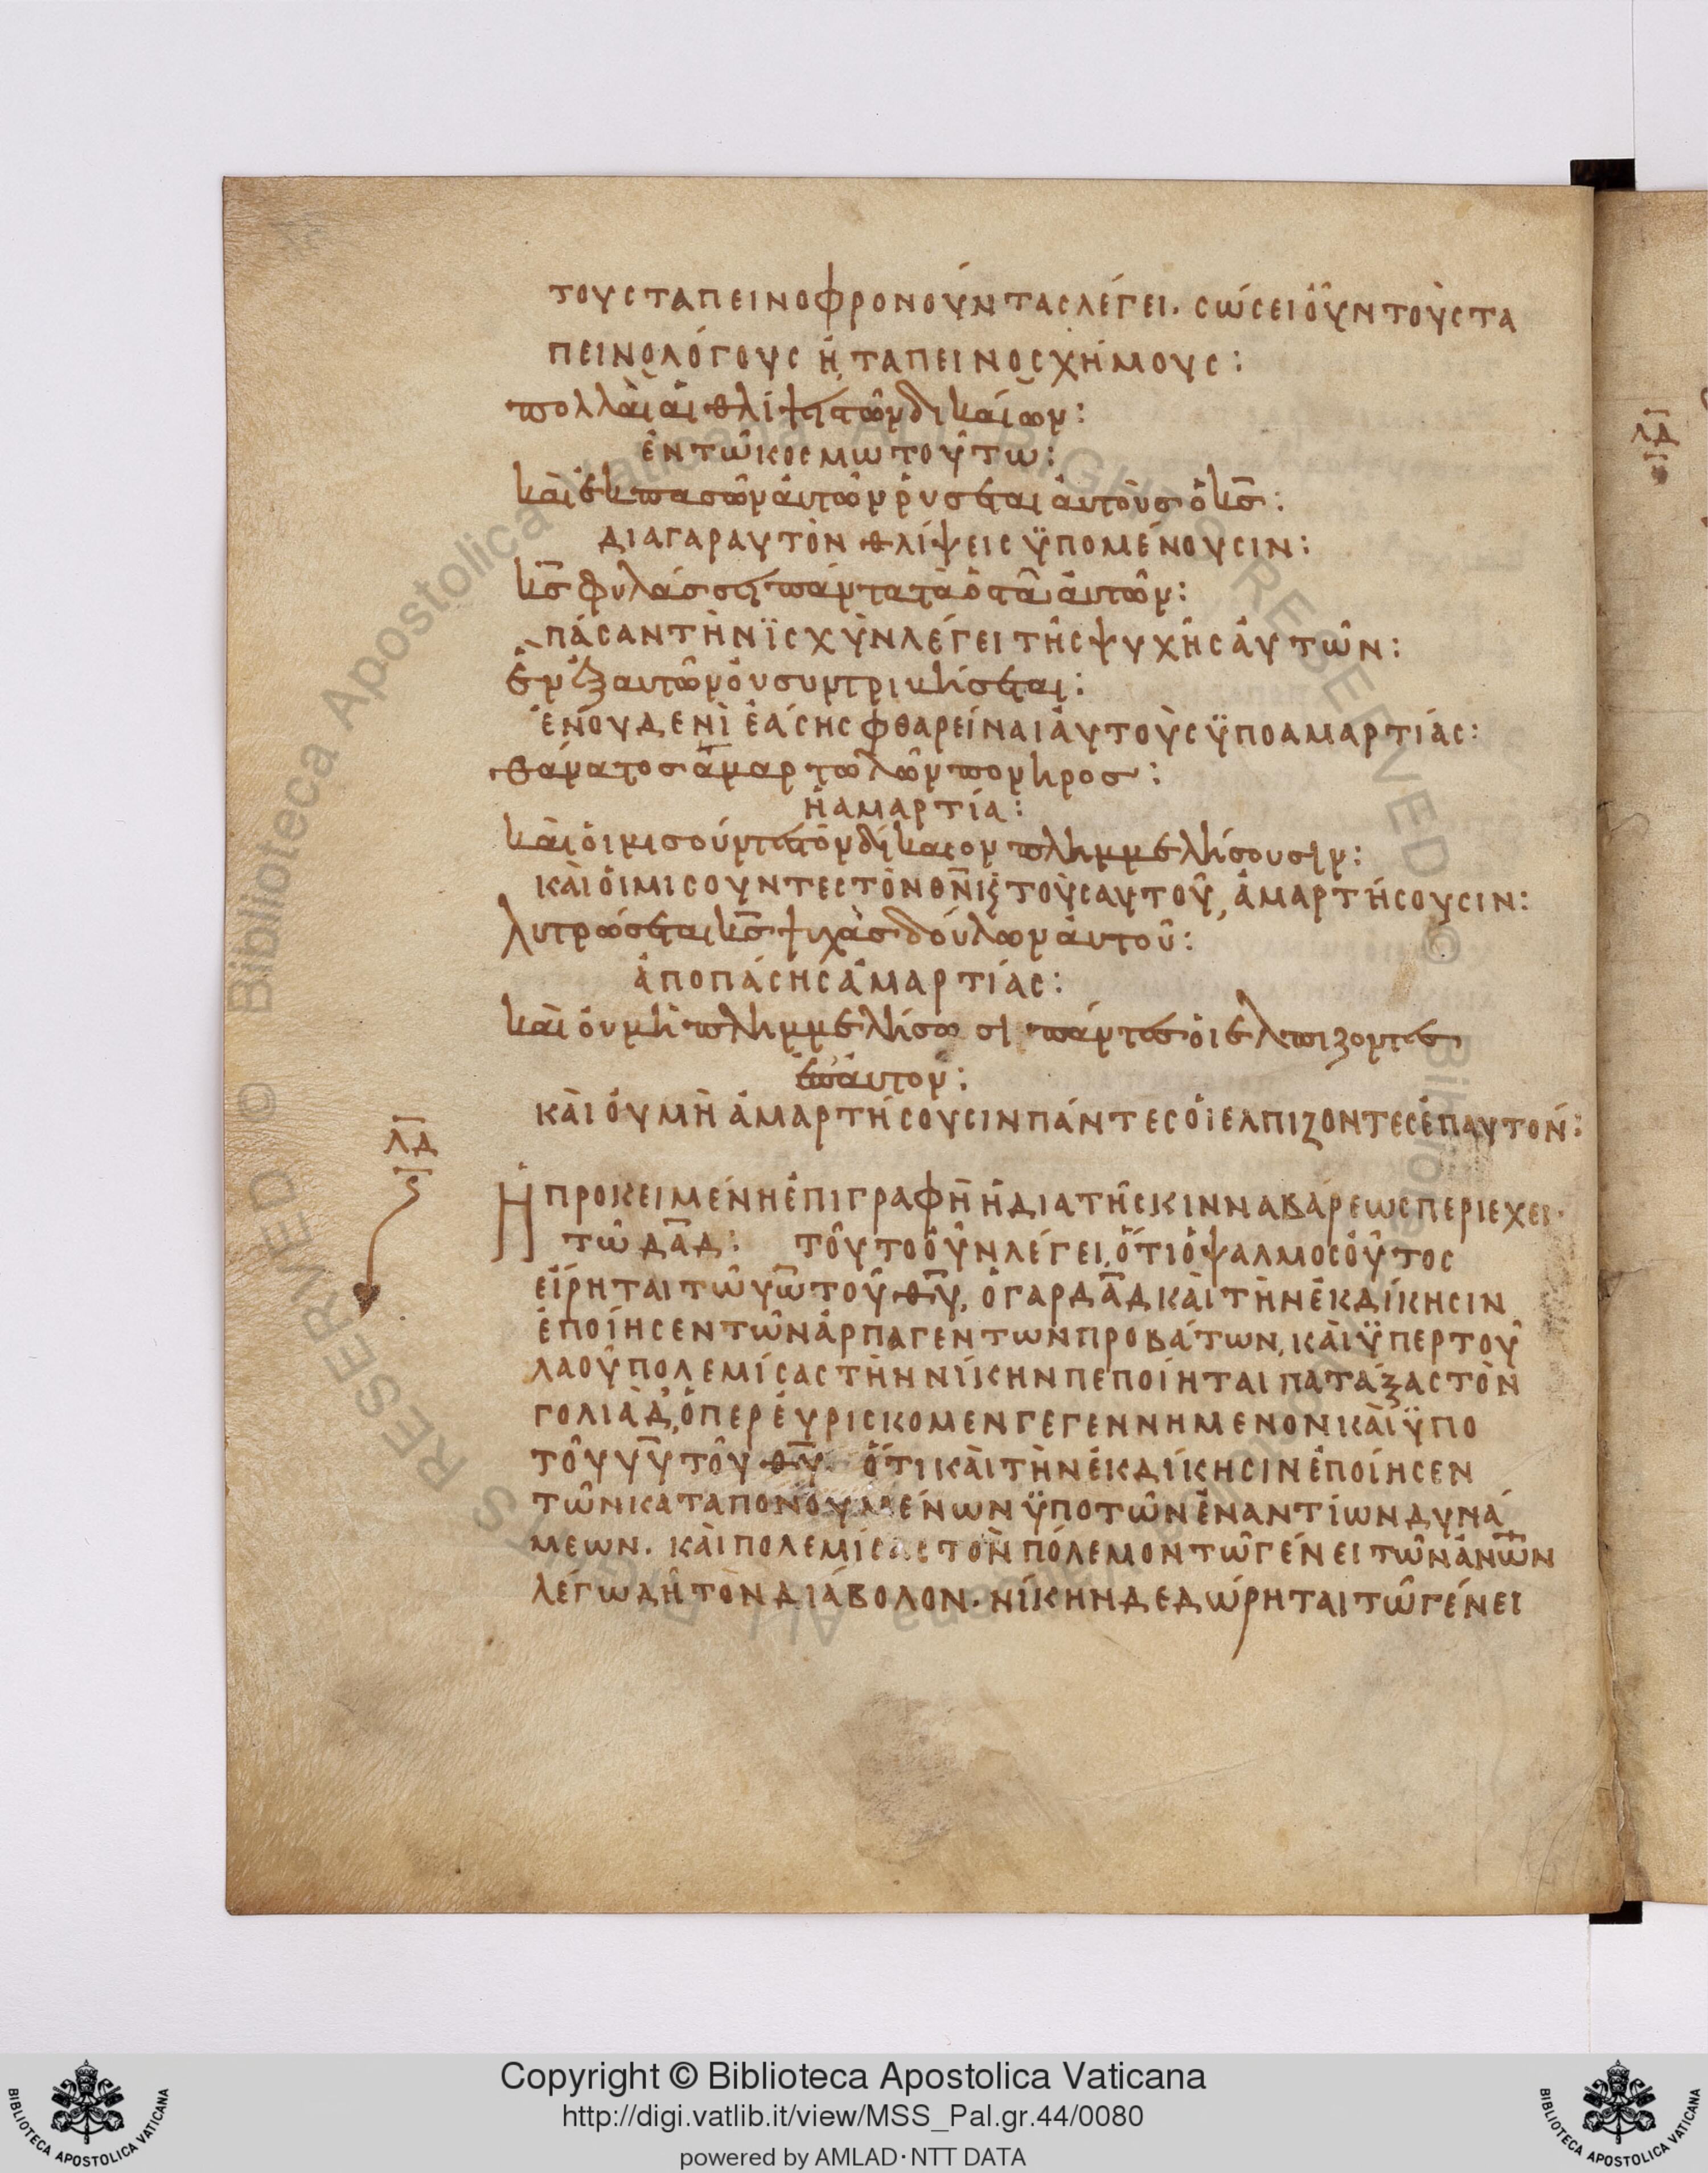 τους ταπεινοφρονούντας λέγει· σώσει ὀῦν τοὺς τα
πεινολόγους ἢ ταπεινοσχήμους:
πολλὰι ἁι θλίψεις τῶν δικάίων:
ἐν τῶ κοσμω τούτω:
κὰι ἐκ πασῶν ἀυτῶν ῥύσεται ἀυτὸυς ὁ κ̅ς̅:
δια γαρ αυτὸν θλίψεις ϋπομένουσιν:
κ̅ς̅ φυλάσσει πάντα τὰ ὀστᾶ ἀυτῶν:
πάσαν τὴν ϊσχὺν λέγει τῆς ψυχῆς ἀυτῶν:
ἓν ἐξ αυτῶν ὀυ συντριβήσεται:
ἑν ουδενὶ ἐάσης φθαρείναι ἀυτοὺς ϋπο αμαρτίας:
θάνατος ἁμαρτωλῶν πονηρος:
ἡ αμαρτία:
κὰι ὁι μισούντες τὸν δίκαιον πλημμελήσουσιν:
κὰι ὁι μισουντες τὸν θ̅ν̅ κ̀ τοὺς αυτοῦ, ἁμαρτήσουσιν:
λυτρώσεται κ̅ς̅ ψυχὰς δούλων ἀυτοῦ:
ἀπο πάσης ἁμαρτίας:
κὰι ὀυ μὴ πλημμελήσωσι πάντες ὁι ελπιζοντες
ἐπ' ἀυτον:
κὰι ὀυ μὴ ἁμαρτήσουσιν πάντες ὁι ελπιζοντες ἐπ αυτον:
λ̅δ̅
ς̅
Ἡ προκειμένη ἐπιγραφὴ ἡ δια της κινναβάρεως περιεχει·
τῶ δ̅α̅δ̅: τοῦτο ὀῦν λέγει, ὅτι ὁ ψαλμος ὀῦτος
εἴρηται τῶ υ̅ω̅ τοῦ θ̅υ̅, ὁ γαρ δ̅α̅δ̅ κὰι τὴν ἐκδίκησιν
ἐποίησεν τῶν ἁρπαγεντων προβάτων, κὰι ϋπερ τοῦ
λαοῦ πολεμίσας τὴν νίκην πεποίηται πατάξας τὸν
γολιὰδ, ὅπερ ἑυρισκομεν γεγεννημενον κὰι ϋπο
τοῦ υ̅υ̅ τοῦ θ̅υ̅. ὅτι κὰι τὴν ἐκδίκησιν ἐποίησεν
τῶν καταπονουμένων ϋπο τῶν ἐναντίων δυνά
μεων. κὰι πολεμίσας τὸν πόλεμον τῶ γένει τῶν ἀν̅ω̅ν̅
λέγω δὴ τὸν διάβολον. νίκην δεδώρηται τῶ γένει
λ̅δ̅
Copyright © Biblioteca Apostolica Vaticana
http://digi.vatlib.it/view/MSS_Pal.gr.44/0080
powered by AMLAD·NTT DATA
BIBLIOTECA APOSTOLICA VATICANA
BIBLIOTECA APOSTOLICA VATICANA